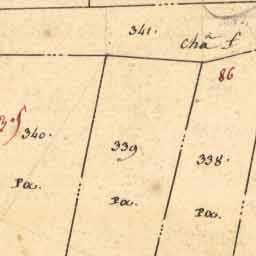 341.
chã f
86
340.
339
338.
Pa.
Pa.
Pa.